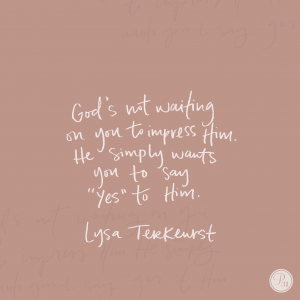 God's not waiting
on you to impress Him.
He simply wants
you to say
"Yes" to Him.
Lysa TerKeurst